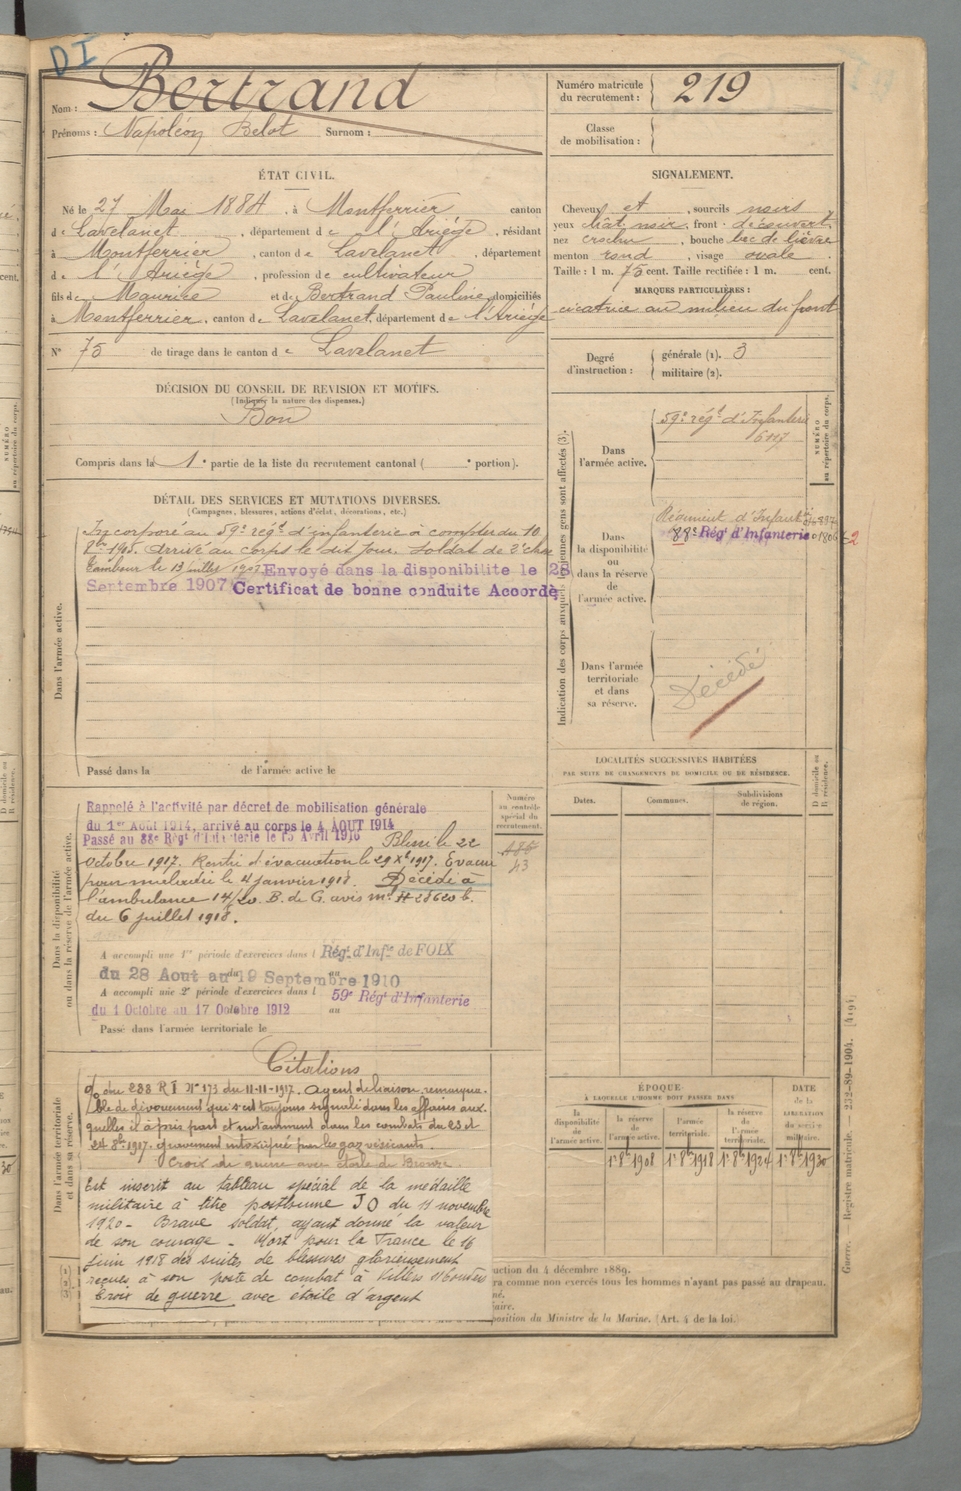 DI
Nom : Bertrand
Prénoms : Napoléon Belot Surnom :
Numéro matricule du recrutement : 219
Classe de mobilisation :
ÉTAT CIVIL.
Né le 27 Mai 1884, à Montferrier canton
de Lavelanet, département de l'Ariège, résidant
à Montferrier, canton de Lavelanet, département
de l'Ariège, profession de cultivateur
fils de Maurice et de Bertrand Pauline domiciliés
à Montferrier, canton de Lavelanet, département de l'Ariège
N° 75 de tirage dans le canton de Lavelanet
SIGNALEMENT.
Cheveux et, sourcils noirs
yeux chât. noir, front découvert
nez crochu, bouche bec de lièvre
menton rond, visage ovale.
Taille : 1 m. 75 cent. Taille rectifiée : 1 m. cent.
MARQUES PARTICULIÈRES :
cicatrice au milieu du front
Degré d'instruction : générale (1). 3
militaire (2).
DÉCISION DU CONSEIL DE REVISION ET MOTIFS.
(Indiquer la nature des dispenses.)
Bon
Compris dans la 1e partie de la liste du recrutement cantonal ( e portion).
DÉTAIL DES SERVICES ET MUTATIONS DIVERSES.
(Campagnes, blessures, actions d'éclat, décorations, etc.)
Dans l'armée active.
Incorporé au 59e régt d'infanterie à compter du 10
8bre 1905. Arrivé au corps le dit jour. Soldat de 2e classe
Tambour le 13 juillet Envoyé dans la disponibilité le 28
Septembre 1907 Certificat de bonne conduite Accordé
Passé dans la de l'armée active le
Indication des corps auxquels les jeunes gens sont affectés (3).
NUMÉRO au répertoire du corps.
Dans l'armée active.
59e régt d'Infanterie
6117
Dans la disponibilité ou dans la réserve de l'armée active.
Régiment d'Infant
88e Régt d'Infanterie
Dans l'armée territoriale et dans sa réserve.
Décédé
LOCALITÉS SUCCESSIVES HABITÉES
PAR SUITE DE CHANGEMENTS DE DOMICILE OU DE RÉSIDENCE.
D domicile ou R résidence.
Dates. Communes. Subdivisions de région.
Dans la disponibilité ou dans la réserve de l'armée active.
Numéro au contrôle spécial du recrutement.
Rappelé à l'activité par décret de mobilisation générale
du 1er Aout 1914, arrivé au corps le 4 AOUT 1914
Passé au 88e Régt d'Infanterie le 15 Avril 1916 Blessé le 22
octobre 1917. Rentré d'évacuation le 29 Xbre 1917. Evacué
pour maladie le 4 janvier 1918. Décédé à
l'ambulance 14/20. B. de G. avis mel # 28620 b.
du 6 juillet 1918.
A accompli une 1re période d'exercices dans l Régt d'Infie de FOIX
du 28 Aout au 19 Septembre 1910
A accompli une 2e période d'exercices dans l 59e Régt d'Infanterie
du 1 Octobre au 17 Octobre 1912
Passé dans l'armée territoriale le
Dans l'armée territoriale et dans sa réserve.
Citations
du 288 R I N° 173 du 11-11-1917. agent de liaison remarqua-
ble de dévouement qui s'est toujours signalé dans les affaires aux-
quelles il a pris part et notamment dans les combats du 23 et
24 8bre 1917. gravement intoxiqué par les gaz vésicants.
Croix de guerre avec étoile de Bronze.
Est inscrit au tableau spécial de la médaille
militaire à titre posthume JO du 11 novembre
1920 - Brave soldat, ayant donné la valeur
de son courage - Mort pour la France le 16
juin 1918 des suites de blessures glorieusement
reçues à son poste de combat à Villers
Croix de guerre avec étoile d'argent
ÉPOQUE
À LAQUELLE L'HOMME DOIT PASSER DANS
la disponibilité de l'armée active. la réserve de l'armée active. l'armée territoriale. la réserve de l'armée territoriale.
DATE de la LIBÉRATION du service militaire.
1er 8bre 1908 1er 8bre 1918 1er 8bre 1924 1er 8bre 1930
uction du 4 décembre 1889.
ra comme non exercés tous les hommes n'ayant pas passé au drapeau.
né.
aire.
position du Ministre de la Marine. (Art. 4 de la loi.)
Guerre. — Registre matricule. — 232-89-1904. [4191]